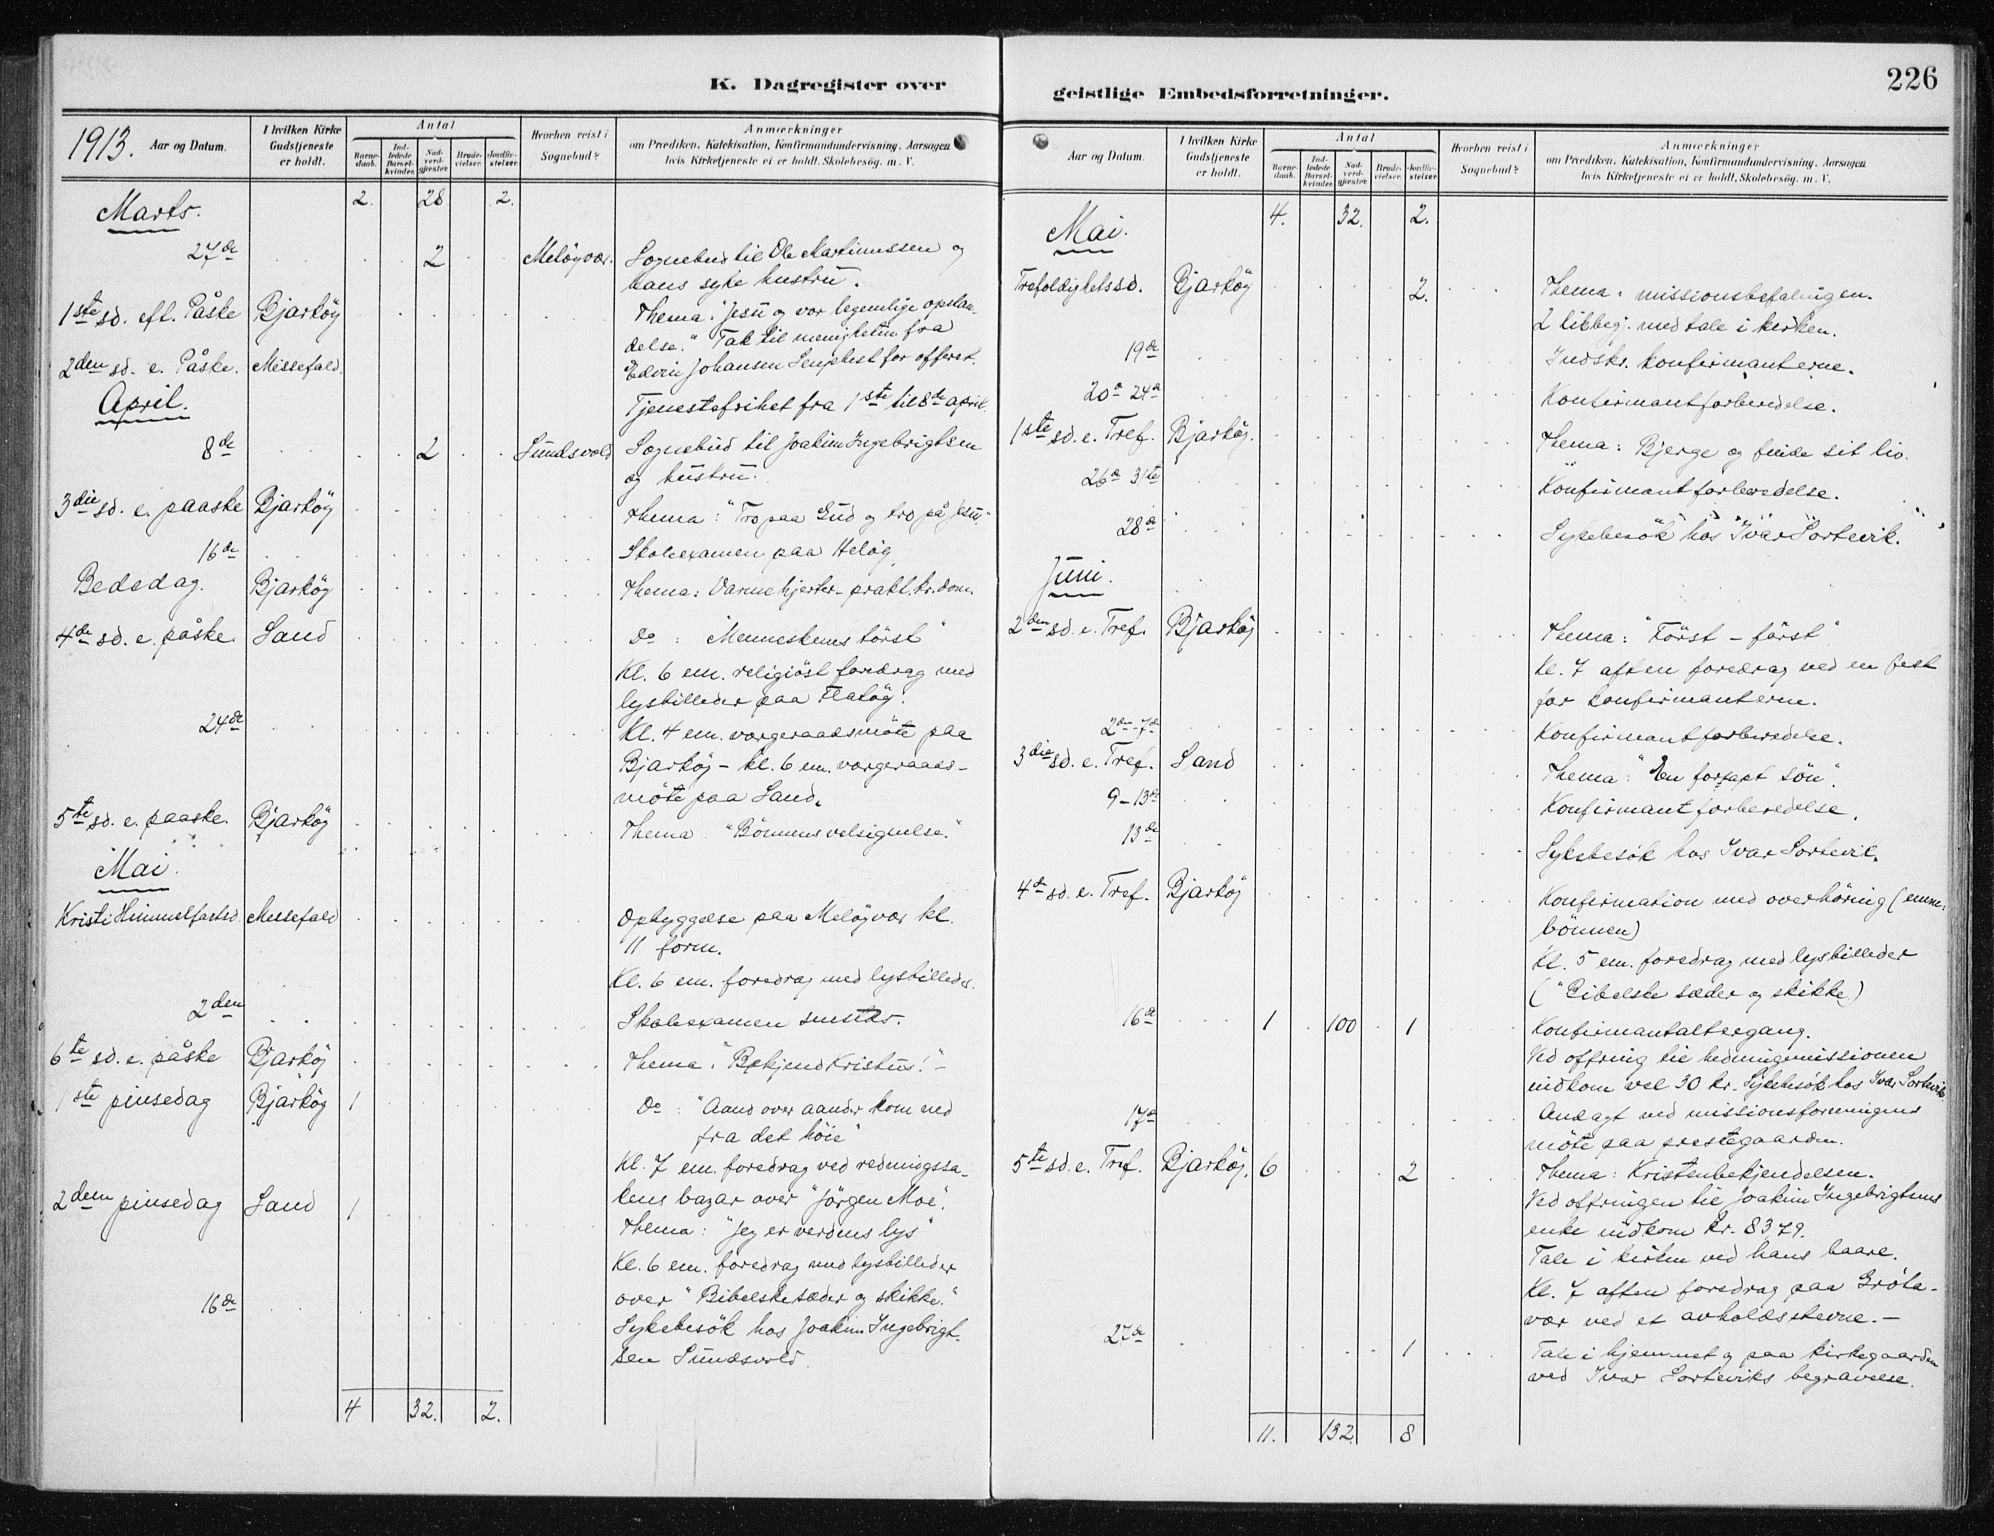 K. Dagregister over
1913.
Aar og Datum.
I hvilken Kirke Gudstjeneste er holdt.
Antal
Barnedaab.
Indledede Barselkvinder.
Nadverdgjester.
Brudevielser.
Jordfæstelser.
Hvorhen reist i Sognebud?
Anmærkninger
om Prædiken, Katekisation, Konfirmandundervisning, Aarsagen
hvis Kirketjeneste ei er holdt, Skolebesøg. m. V.
Marts. 2. 28 2.
27de 2 Meløyvær. Sognebud til Ole Martinussen og
hans syke hustru.
1ste sd. eft. Påske Bjarköy Thema: "Jesu og vor legemlige opstan-
delse." Tak til menigheten fra
2den sd. e. Påske. Messefald. Edvin Johansen for offeret.
April. Tjenestefrihet fra 1ste til 8de april.
8de 2 Sundsvold Sognebud til Joakim Ingebrigtsen
og hustru.
3die sd. e. paaske Bjarköy Thema: "Tro paa Gud og tro på Jesu."
16de Skoleexamen paa Heløy.
Bededag. Bjarköy Thema: Varme hjerter – prakt. kr.dom.
4de sd. e. påske. Sand Do : Menneskenes törst"
Kl. 6 em. religiöst foredrag med
lysbilleder paa Flatöy.
24de Kl. 4 em. vergeraadsmöte paa
Bjarköy – kl. 6 em. vergeraads-
möte paa Sand.
5te sd. e. paaske. Bjarköy Thema: "Bönnens velsignelse."
Mai.
Kristi Himmelfartsd. Messefald Opbyggelse paa Meløyvær kl.
11 form.
Kl. 6 em. foredrag med lysbilleder.
2den Skoleexamen smsteds.
6te sd. e. påske Bjarköy Thema: "Bekjend Kristus!" –
1ste pinsedag Bjarköy 1 Do : "Aand over aander kom ned
fra det höie"
Kl. 7 em. foredrag ved redningssa-
kens bazar over "Jörgen Moe".
2den pinsedag Sand 1 Thema: "Jeg er verdens lys"
Kl. 6 em. foredrag med lysbilleder
over "Bibelske sæder og skikke."
16de Sykebesök hos Joakim Ingebrigt-
sen Sundsvold.
4 32. 2.
geistlige Embedsforretninger.
226
Aar og Datum.
I hvilken Kirke Gudstjeneste er holdt.
Antal
Barnedaab.
Indledede Barselkvinder.
Nadverdgjester.
Brudevielser.
Jordfæstelser.
Hvorhen reist i Sognebud?
Anmærkninger
om Prædiken, Katekisation, Konfirmandundervisning, Aarsagen
hvis Kirketjeneste ei er holdt, Skolebesøg. m. V.
Mai. 4. 32. 2.
Trefoldighetssd. Bjarköy 2. Thema: missionsbefalingen.
2 likbeg. med tale i kirken.
19de Indskr. konfirmanterne.
20de 24de Konfirmantforberedelse.
1ste sd. e. Tref. Bjarköy. Thema: Bjerge og finde sit liv.
26de 31te Konfirmantforberedelse.
28de Sykebesök hos Ivar Sortevik.
Juni.
2den sd. e. Tref. Bjarköy Thema: "Först – först"
Kl. 7 aften foredrag ved en fest
for konfirmanterne.
2den–7de Konfirmantforberedelse.
3die sd. e. Tref. Sand Thema: "En fortapt sön".
9–13de Konfirmantforberedelse.
13de Sykebesök hos Ivar Sortevik.
4de sd. e. Tref. Bjarköy Konfirmation med overhöring (emne:
bönnen)
Kl. 5 em. foredrag med lysbilleder
("Bibelske sæder og skikke)
16de 1 100 1 Konfirmantaltergang.
Ved offring til hedningemissionen
indkom vel 30 kr. Sykebesök hos Ivar Sortevik
17de Andagt ved missionsforeningens
möte paa prestegaarden.
5te sd. e. Tref. Bjarköy. 6 2 Thema: Kristenbekjendelsen.
Ved offringen til Joakim Ingebrigtsens
enke indkom kr. 8379.
Tale i kirken ved hans baare.
Kl. 7 aften foredrag paa Gröta-
vær ved et avholdsstevne. –
27de 1 Tale i hjemmet og paa kirkegaarden
ved Ivar Sorteviks begravelse.
11. 132 8